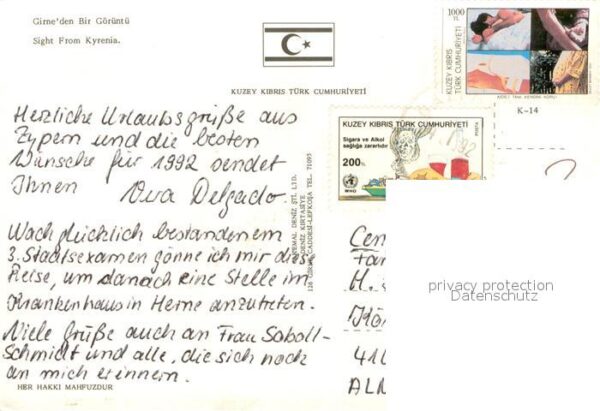 Girne'den Bir Görüntü
Sight From Kyrenia.
KUZEY KIBRIS TÜRK CUMHURİYETİ
1000 TL.
KUZEY KIBRIS
TÜRK CUMHURİYETİ
K-14
KUZEY KIBRIS TÜRK CUMHURİYETİ
Sigara ve Alkol
sağlığa zararlıdır
200 TL.
WHO
Herzliche Urlaubsgrüße aus
Zypern und die besten
Wünsche für 1992 sendet
Ihnen Delgado.
Nach glücklich bestandenem
3. Staatsexamen gönne ich mir diese
Reise, um danach eine Stelle im
Krankenhaus in Herne anzutreten.
Viele Grüße auch an Frau Soboll-
Schmidt und alle, die sich noch
an mich erinnern.
HER HAKKI MAHFUZDUR
KEMAL DENİZ ŞTİ. LTD.
DENİZ KIRTASİYE
128 GİRNE CADDESİ-LEFKOŞA TEL. 71095
Cen
Fam
H.
Kön
410
ALM
privacy protection
Datenschutz